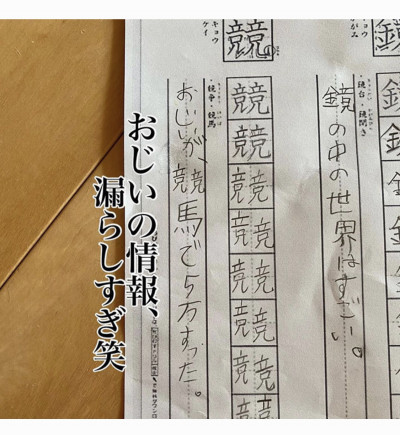 かがみ
鏡
鏡台・鏡開き
鏡の中の世界はすごい。
キョウ
ケイ
競
競競
競競
競競
競競
競競
競競
競競
競争・競馬
おじいが、競馬で5万すった。
おじいの情報、
漏らしすぎ笑